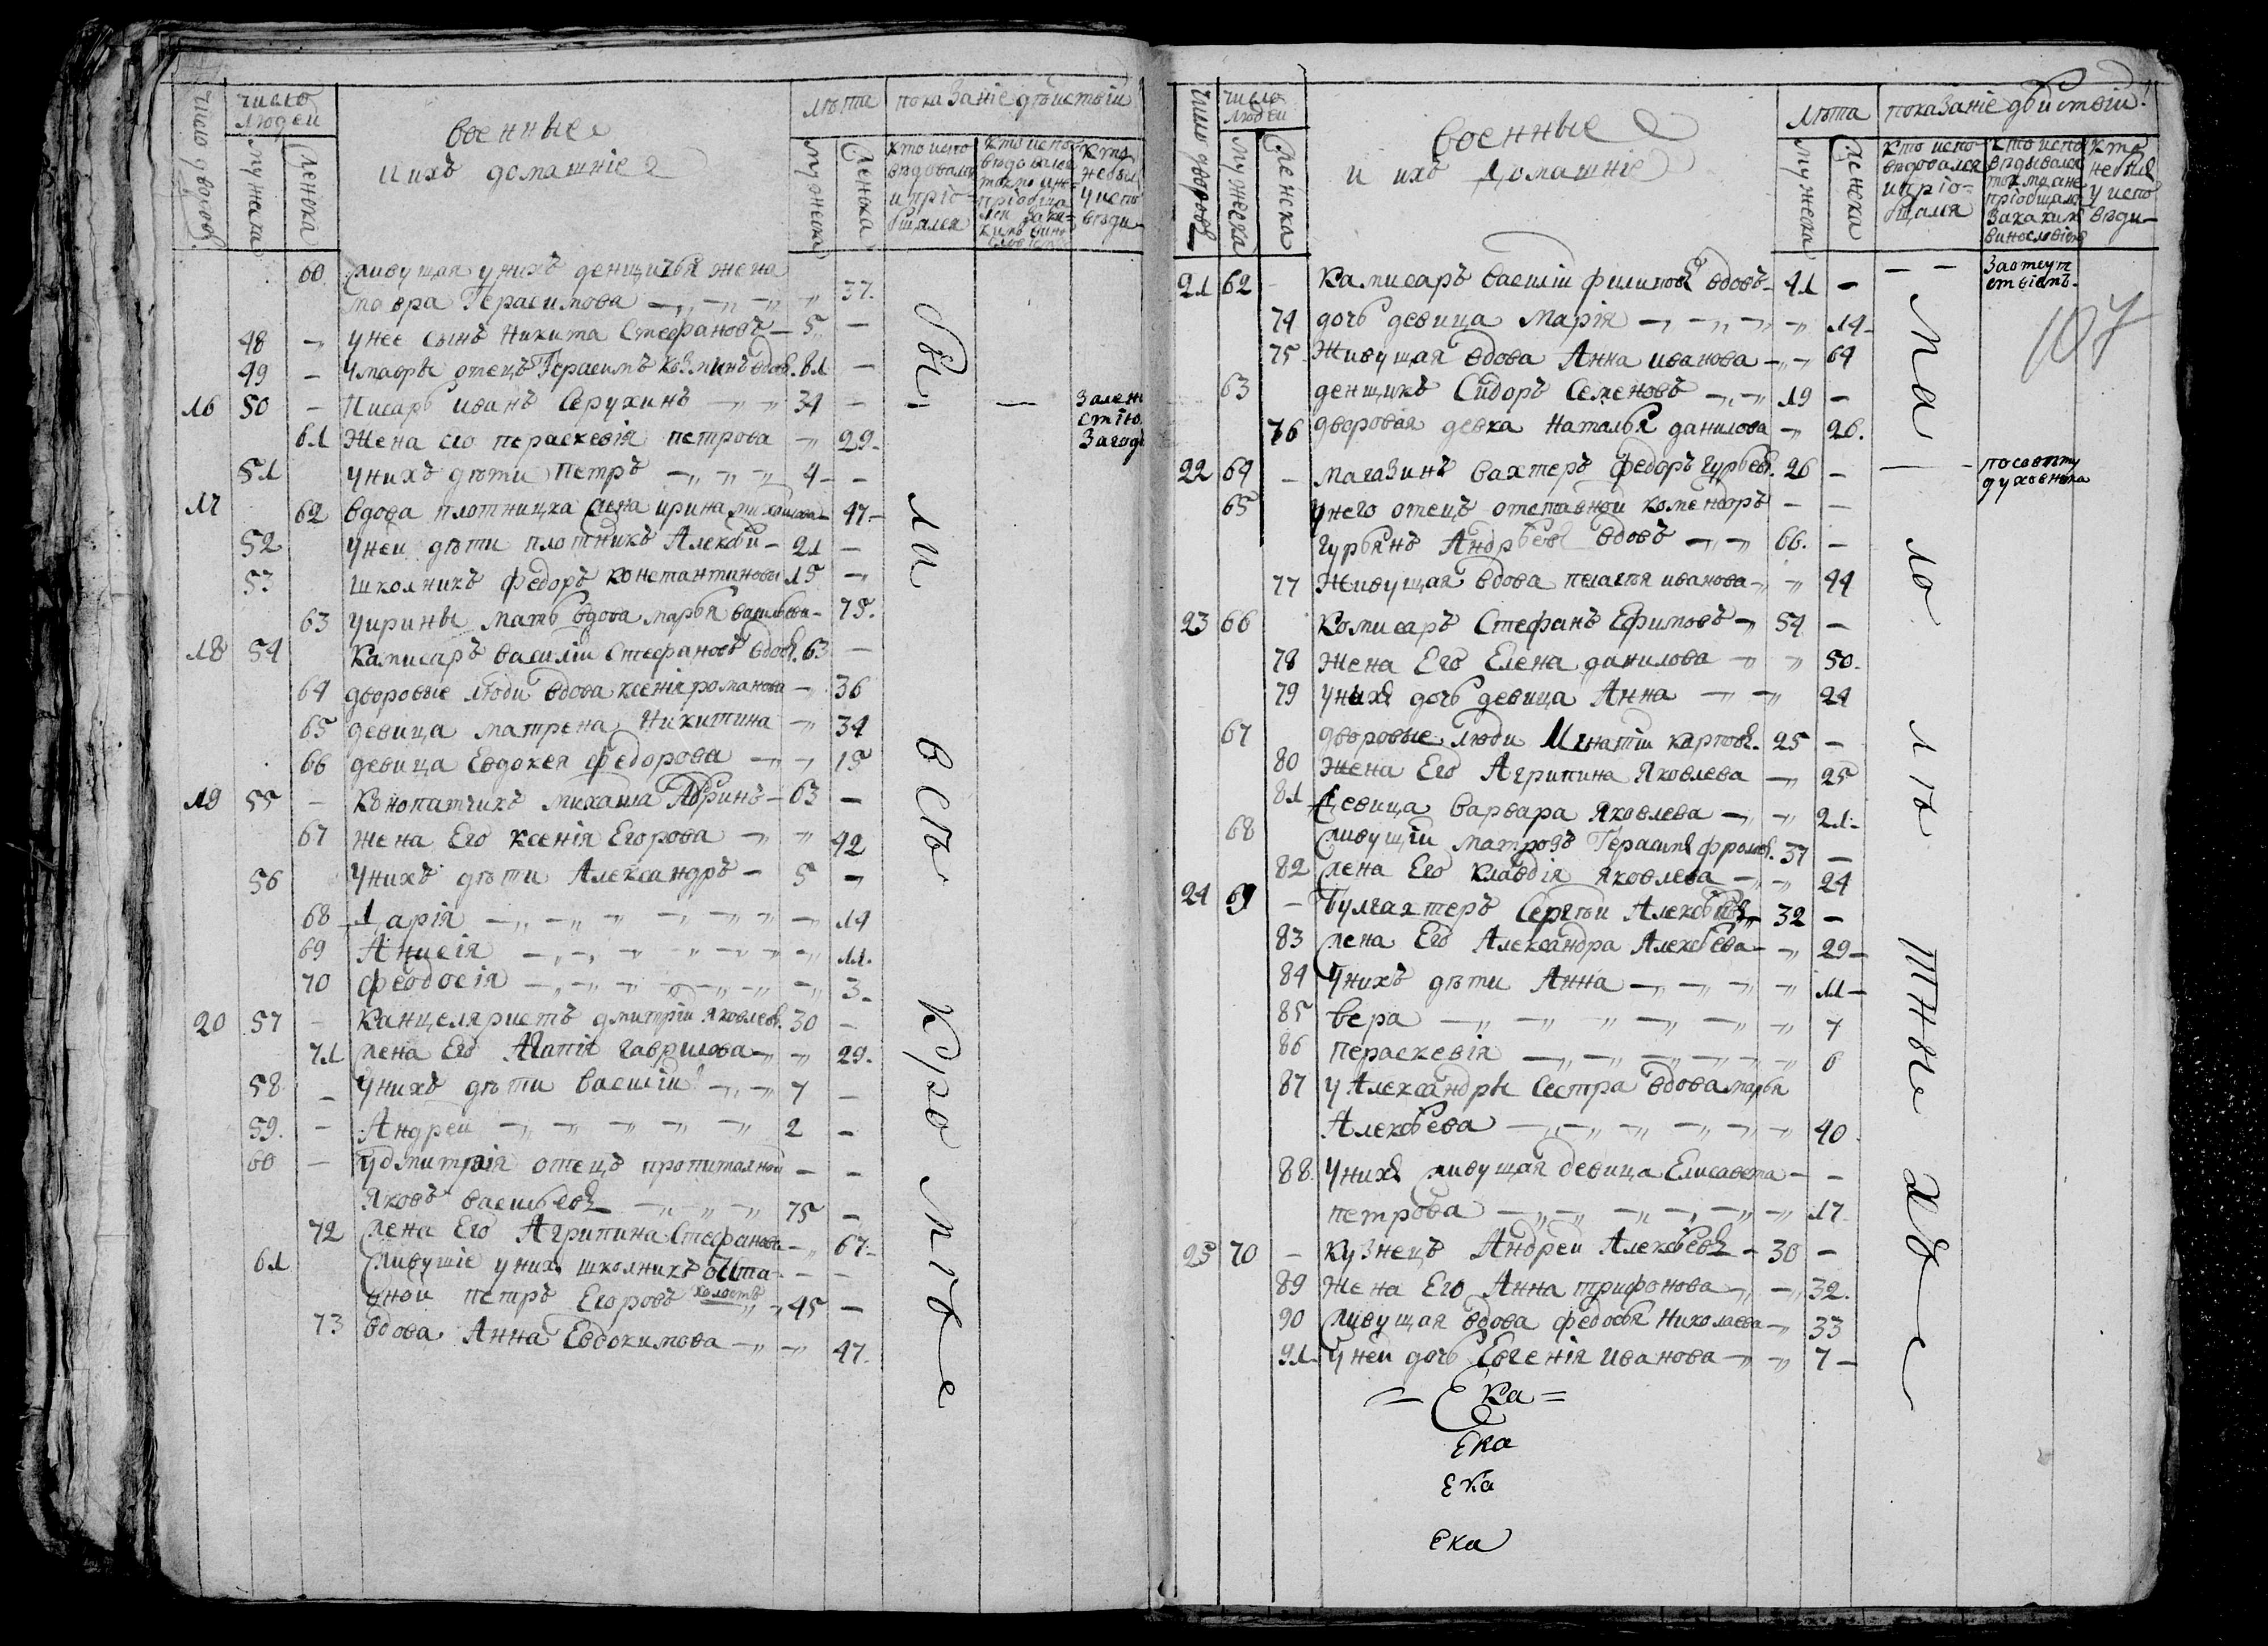 число дворовъ
число людей
мужеска
женска
военные
и ихъ домашніе
лѣта
мужеска
женска
показаніе дѣйствій
кто испо
вѣдовался
и пріо-
бщался
кто испо
вѣдовался
токмо и не
пріобща
лся за ка-
кимъ вино
словіемъ
кто
не бы
у испо
вѣди
60 живущая у нихъ денщичья жена
мавра Герасимова 37.
48 у нее сынъ Никита Стефановъ 5
49 у мавры отецъ Герасимъ козминъ вдов. 81
16 50 Писарь иванъ Серухинъ 34
61 жена его пераскевія петрова 29
51 у нихъ дѣти петръ 4
17 62 вдова плотницка жена ирина михаилова 47
52 у неи дѣти плотникъ Алексѣи 21
53 школникъ федоръ константиновы 15
63 у ирины мать вдова марья васильева 75.
18 54 Камисаръ василіи Стефановъ вдов. 63
64 дворовые люди вдова ксенія романова 36
65 девица матрена Никитина 34
66 девица Евдокея федорова 15
19 55 Конопатчикъ михаила 63
67 жена Его ксенія Егорова 42
56 у нихъ дѣти Александръ 5
68 Дарія 14
69 Анисія 11.
70 феодосія 3
20 57 Канцеляристъ дмитріи яковлев. 30
71 жена Его Агапія гаврилова 29.
58 у нихъ дѣти василіи 7
59. Андреи 2
60 у дмитрія отецъ пропитанной
Яковъ васильевъ 75
72 жена Его Агрипина Стефанова 67
61 живущіе у нихъ школникъ
петръ Егоровъ холостъ 45
73 вдова Анна Евдокимова 47.
были всѣ кромѣ
за лено
стію
число дворовъ
число людей
мужеска
женска
военные
и ихъ домашніе
лѣта
мужеска
женска
показаніе дѣйствіи
кто испо-
вѣдовался
и пріо-
бщался
кто испо
вѣдывался
токмо и не
пріобщался
за какимъ
винословіемъ
кто
не былъ
у испо
вѣди
107
21 62 Камисаръ василіи филиповъ вдовъ 41
за отсут
ствіемъ.
74 дочь девица марія 14
75 живущая вдова Анна иванова 64
63 денщикъ Сидоръ Семеновъ 19
76 дворовая девка наталья данилова 26.
22 64 магазинъ вахтеръ федоръ гурьевъ. 26
по совѣту
духовника
65 у него отецъ отставной комендоръ
гурьянъ Андрѣевъ вдовъ 66.
77 живущая вдова пелагея иванова 44
23 66 комисаръ Стефанъ Ефимовъ 54
78 жена Его Елена данилова 50
79 у нихъ дочь девица Анна 24
67 дворовые люди Игнатіи карповъ. 25
80 жена Его Агрипина яковлева 25
81 девица варвара яковлева 21
68 живущіи матрозъ Герасимъ фролов. 37
82 жена Его клавдія яковлева 24
24 69 булгахтеръ Сергѣи Алексѣевъ 32
83 жена Его Александра Алексѣева 29
84 у нихъ дѣти Анна 11
85 вера 7
86 пераскевія 6
87 у Александры Сестра вдова марья
Алексѣева 40
88. у нихъ живущая девица Елисавета
петрова 17
25 70 кузнецъ Андреи Алексѣевъ 30
89 жена Его Анна трифонова 32.
90 живущая вдова федосья Николаева 33
91 у неи дочь Евгенія иванова 7
малолѣтныхъ
= Ека =
Ека
Ека
Ека